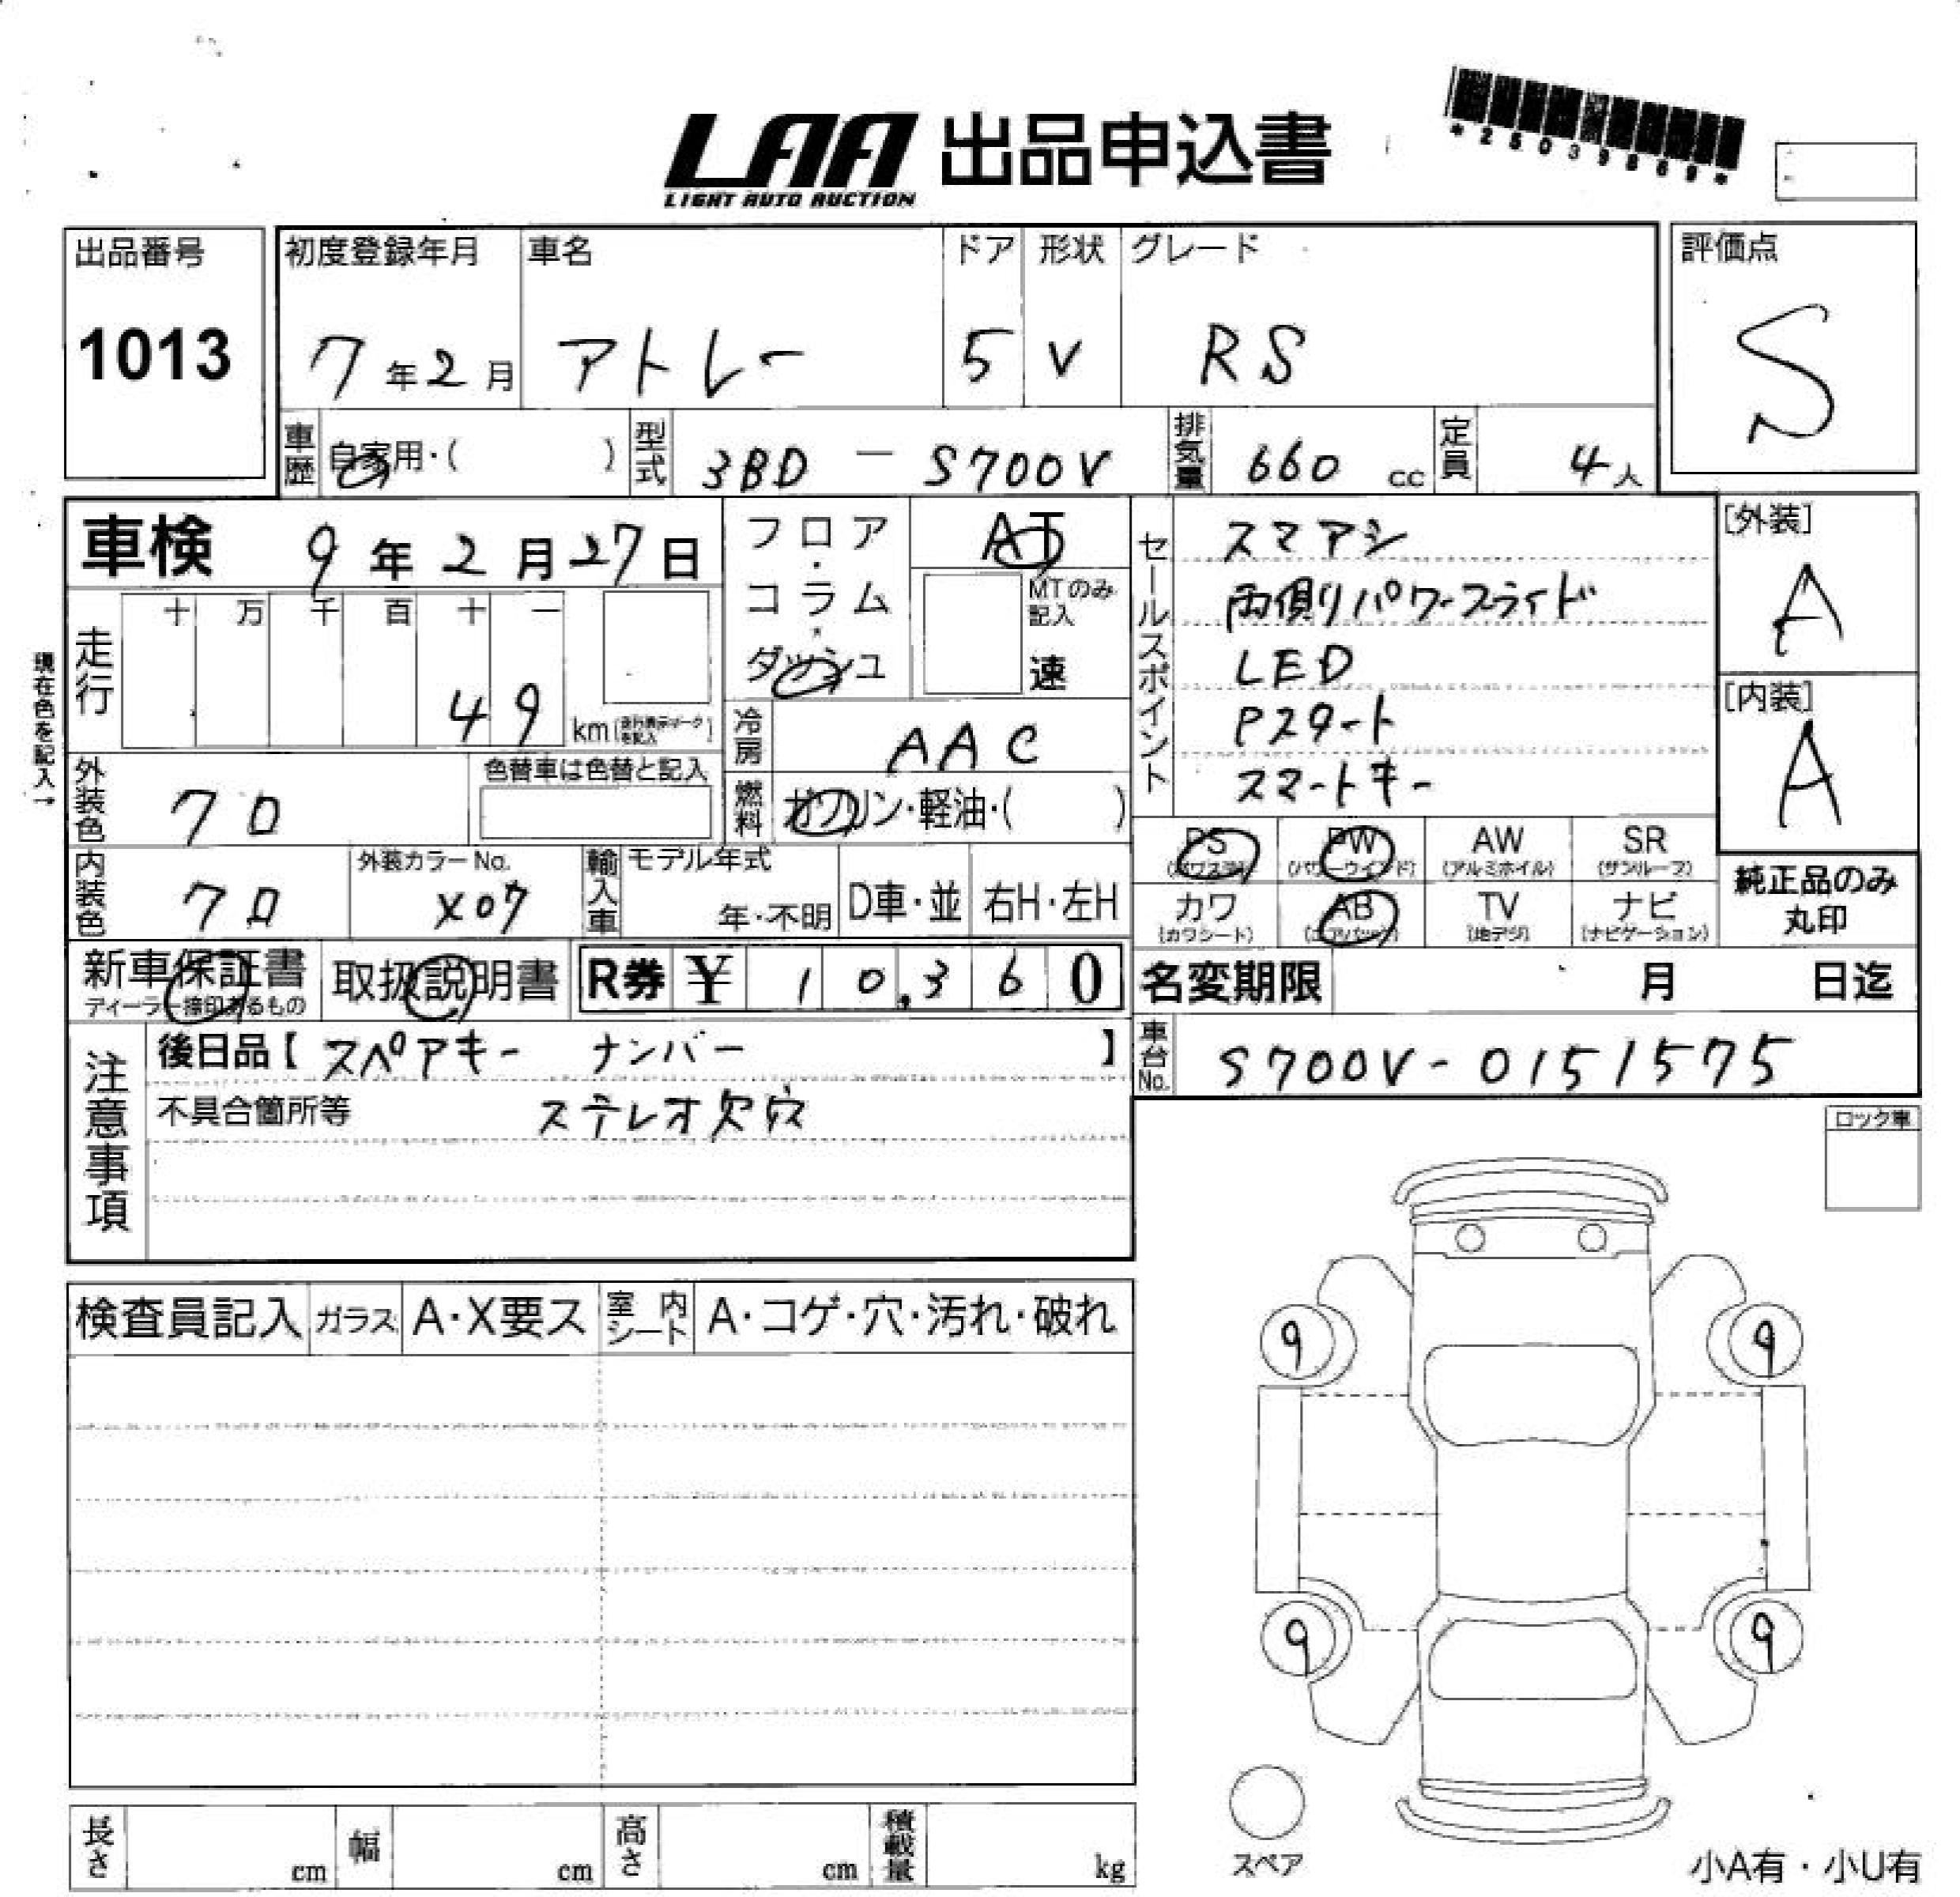 LAA 出品申込書
LIGHT AUTO AUCTION
*25039869*
出品番号 1013
初度登録年月 7年2月
車名 アトレー
ドア 5
形状 V
グレード RS
評価点 S
車歴 自家用・( )
型式 3BD - S700V
排気量 660 cc
定員 4人
車検 9年2月27日
フロア・コラム・ダッシュ
AT
MTのみ記入
速
セールスポイント
スマアシ
両側りパワースライド
LED
Pスタート
スマートキー
[外装] A
[内装] A
現在色を記入→
走行 十 万 千 百 十 一
49 km
冷房 AAC
外装色 クロ
色替車は色替と記入
燃料 ガソリン・軽油・( )
PS (パワステ)
PW (パワーウインド)
AW (アルミホイル)
SR (サンルーフ)
内装色 クロ
外装カラーNo. X07
輸入車 モデル年式 年・不明
D車・並
右H・左H
カワ (カワシート)
AB (エアバッグ)
TV (地デジ)
ナビ (ナビゲーション)
純正品のみ丸印
新車保証書
ディーラー捺印あるもの
取扱説明書
R券 ¥ 10,360
名変期限 月 日迄
注意事項
後日品【スペアキー ナンバー】
車台No. S700V-0151575
不具合箇所等 ステレオ欠穴
ロック車
検査員記入 ガラス A・X要ス 室内シート A・コゲ・穴・汚れ・破れ
9 9
9 9
スペア
長さ cm 幅 cm 高さ cm 積載量 kg
小A有・小U有